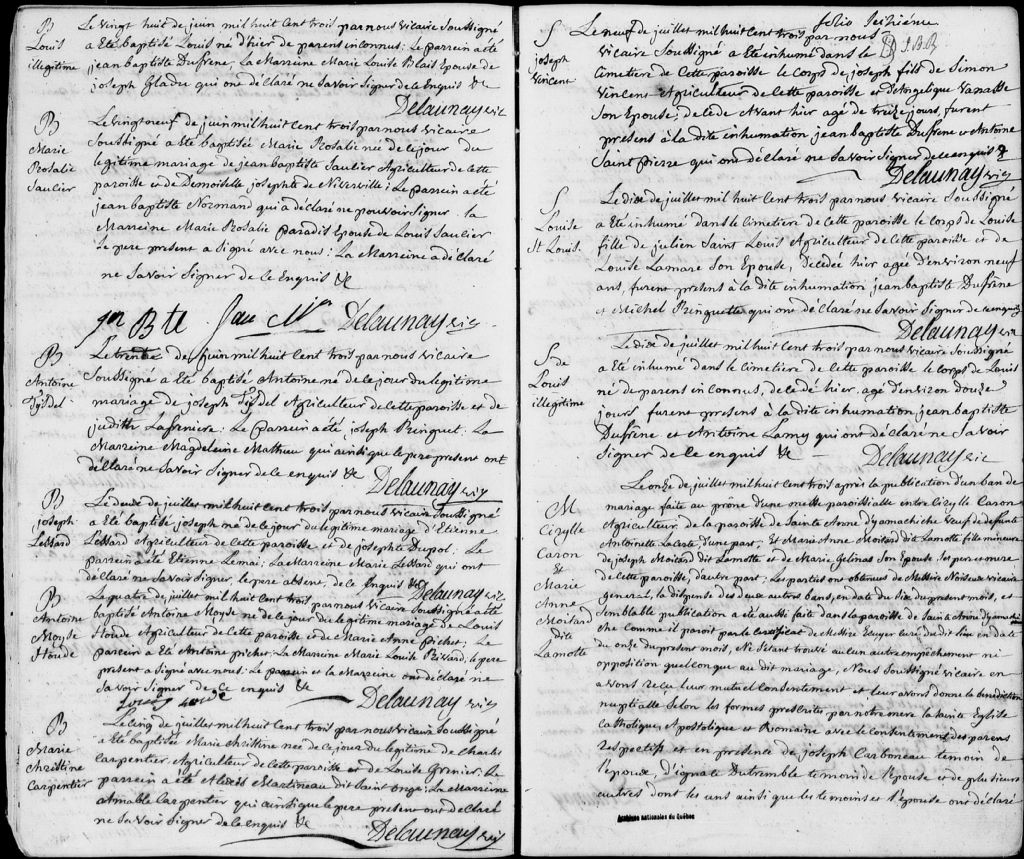 B
Louis
illegitime
Le vingt huit de juin mil huit cent trois par nous vicaire soussigné
a été baptisé Louis né d'hier de parens inconnus; Le parrein a été
jean baptiste Dufrene, La Marreine Marie Louise Blais Epouse de
joseph Gladu qui ont déclaré ne savoir signer de ce enquis &c
Delaunay vic
B
Marie
Rosalie
Saulier
Le vingt neuf de juin mil huit cent trois par nous vicaire
soussigné a été baptisée Marie Rosalie née de ce jour du
légitime mariage de jean baptiste Saulier Agriculteur de cette
paroisse et de Demoiselle josephte de Niverville; Le parrein a été
jean baptiste Normand qui a déclaré ne pouvoir signer. La
Marreine Marie Rosalie Paradis Epouse de Louis Saulier
Le pere present a signé avec nous: La Marreine a déclaré
ne savoir signer de ce enquis &c
Delaunay vic
B
Antoine
Le trente de juin mil huit cent trois par nous vicaire
soussigné a été baptisé Antoine né de ce jour du légitime
mariage de joseph Agriculteur de cette paroisse et de
judith Lafreniere: Le parrein a été joseph Ringuet: La
Marreine Magdeleine Mathieu qui ainsi que le pere present ont
déclaré ne savoir signer de ce enquis &c
Delaunay vic
B
joseph
Lessard
Le deux de juillet mil huit cent trois par nous vicaire soussigné
a été baptisé joseph né de ce jour du légitime mariage d'Etienne
Lessard Agriculteur de cette paroisse et de josephte Dupol. Le
parrein a été Etienne Lemai; La Marreine Marie Lessard qui ont
déclaré ne savoir signer, le pere absent, de ce Enquis &c
Delaunay vic
B
Antoine
Moyse
Houde
Le quatre de juillet mil huit cent trois par nous vicaire soussigné a été
baptisé Antoine Moyse né de ce jour du légitime mariage de Louis
Houde Agriculteur de cette paroisse et de Marie Anne pichet; Le
parrein a Eté Antoine pichet; La Marreine Marie Louise Rivard, le pere
present a signé avec nous: Le parrein et la Marreine ont déclaré ne
savoir signer de ce enquis &c
Delaunay vic
B
Marie
Christine
Carpentier
Le cinq de juillet mil huit cent trois par nous vicaire soussigné
a été baptisée Marie christine née de ce jour du légitime de charles
Carpentier Agriculteur de cette paroisse et de Louise Grenier. Le
parrein a été Alexis Martineau dit Saint onge; La Marreine
aimable Carpentier qui ainsi que le pere present ont déclaré
ne savoir signer de ce enquis &c
Delaunay vic
folio Seizieme
S
joseph
Vincent
Le neuf de juillet mil huit cent trois par nous
vicaire soussigné a été inhumé dans le
Cimetiere de cette paroisse le corps de joseph fils de Simon
Vincent Agriculteur de cette paroisse et d'Angelique Vanasse
Son Epouse, décédé avant hier agé de treize jours, furent
presens à la dite inhumation jean baptiste Dufrene et Antoine
Saint pierre qui ont déclaré ne savoir signer de ce enquis &
Delaunay vic
S
Louise
St Louis
Le dix de juillet mil huit cent trois par nous vicaire soussigné
a été inhumé dans le cimetiere de cette paroisse le corps de Louise
fille de julien Saint Louis Agriculteur de cette paroisse et de
Louise Lamare Son Epouse, décédée hier agée d'environ neuf
ans, furent presens à la dite inhumation jean baptiste Dufrene
et Michel Ringuette qui ont déclaré ne savoir signer de ce enquis
Delaunay vic
S de
Louis
illegitime
Le dix de juillet mil huit cent trois par nous vicaire soussigné
a été inhumé dans le Cimetiere de cette paroisse le corps de Louis
né de parens inconnus, décédé hier, agé d'environ douze
jours furent presens à la dite inhumation jean baptiste
Dufrene et Antoine Lamy qui ont déclaré ne savoir
signer de ce enquis &c
Delaunay vic
M
Cirylle
Caron
&
Marie
Anne
Moisard
dite
Lamotte
Le onze de juillet mil huit cent trois après la publication d'un ban de
mariage faite au prône d'une messe paroissiale entre Cirylle Caron
Agriculteur de la paroisse de Sainte Anne d'yamachiche Veuf de defunte
Antoinette Lacerte d'une part; Et Marie Anne Moisard dit Lamotte fille mineure
de joseph Moisard dit Lamotte et de Marie Gelinas son Epouse ses pere et mere
de cette paroisse d'autre part; Les parties ont obtenues de Messire Noiseux vicaire
general, la dispense des deux autres bans, en date du six du present mois, et
semblable publication a été aussi faite dans la paroisse de Sainte Anne d'yamachi
che comme il paroit par le Certificat de Messire Ecuyer Curé du dit lieu en date
du onze du present mois, Ne s'étant trouvé aucun autre empêchement ni
opposition quelconque au dit mariage, Nous soussigné vicaire en
avons reçu leur mutuel consentement et leur avons donné la bénédiction
nuptialle selon les formes prescrites par notre mere la sainte Eglise
Catholique Apostolique et Romaine avec le consentement des parens
respectifs et en presence de joseph Carboneau temoin de
l'epoux, d'ignace Dutremble temoin de l'epouse et de plusieurs
autres dont les uns ainsi que les temoins et l'épouse ont déclaré
Archives nationales du Québec